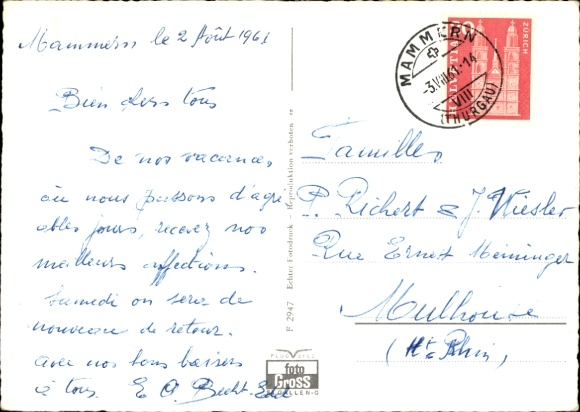 Mammern le 2 Août 1961
Bien chers tous
De nos vacances
où nous passons d'agré
ables jours, recevez nos
meilleurs affections.
Samedi on sera de
nouveau de retour.
avec nos bons baisers
à tous. E. A. Becht
F 2947 Echter Fotodruck – Reproduktion verboten
foto
Gross
ST. GALLEN-O
MAMMERN
-3.VIII.61-14
VIII
(THURGAU)
HELVETIA
ZÜRICH
Familles
P. Richert & J. Wiesler
Rue Ernest Meininger
Mulhouse
(Ht Rhin)